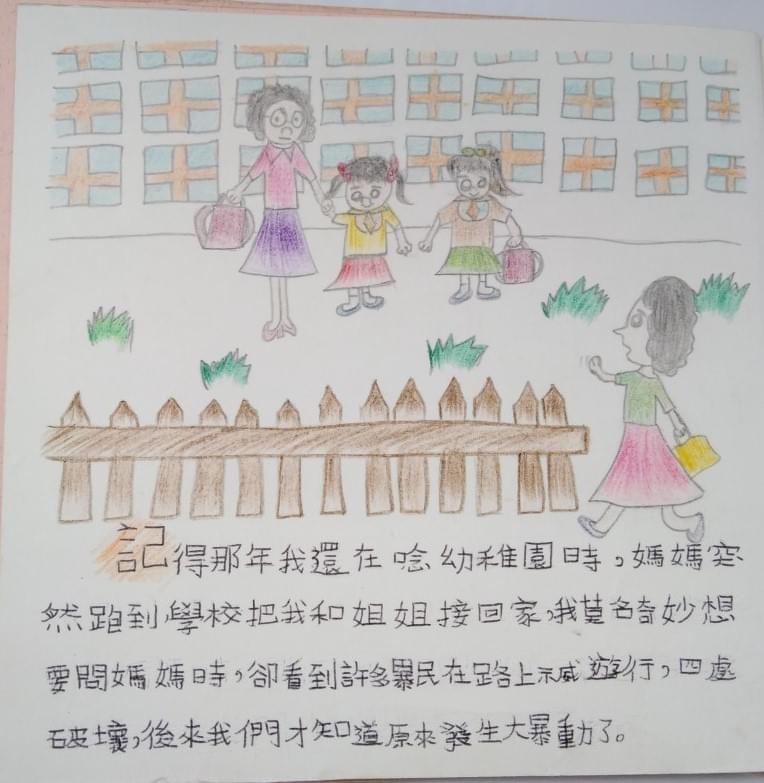 記得那年我還在唸幼稚園時，媽媽突
然跑到學校把我和姐姐接回家，我莫名奇妙想
要問媽媽時，卻看到許多暴民在路上示威遊行，四處
破壞，後來我們才知道原來發生大暴動了。